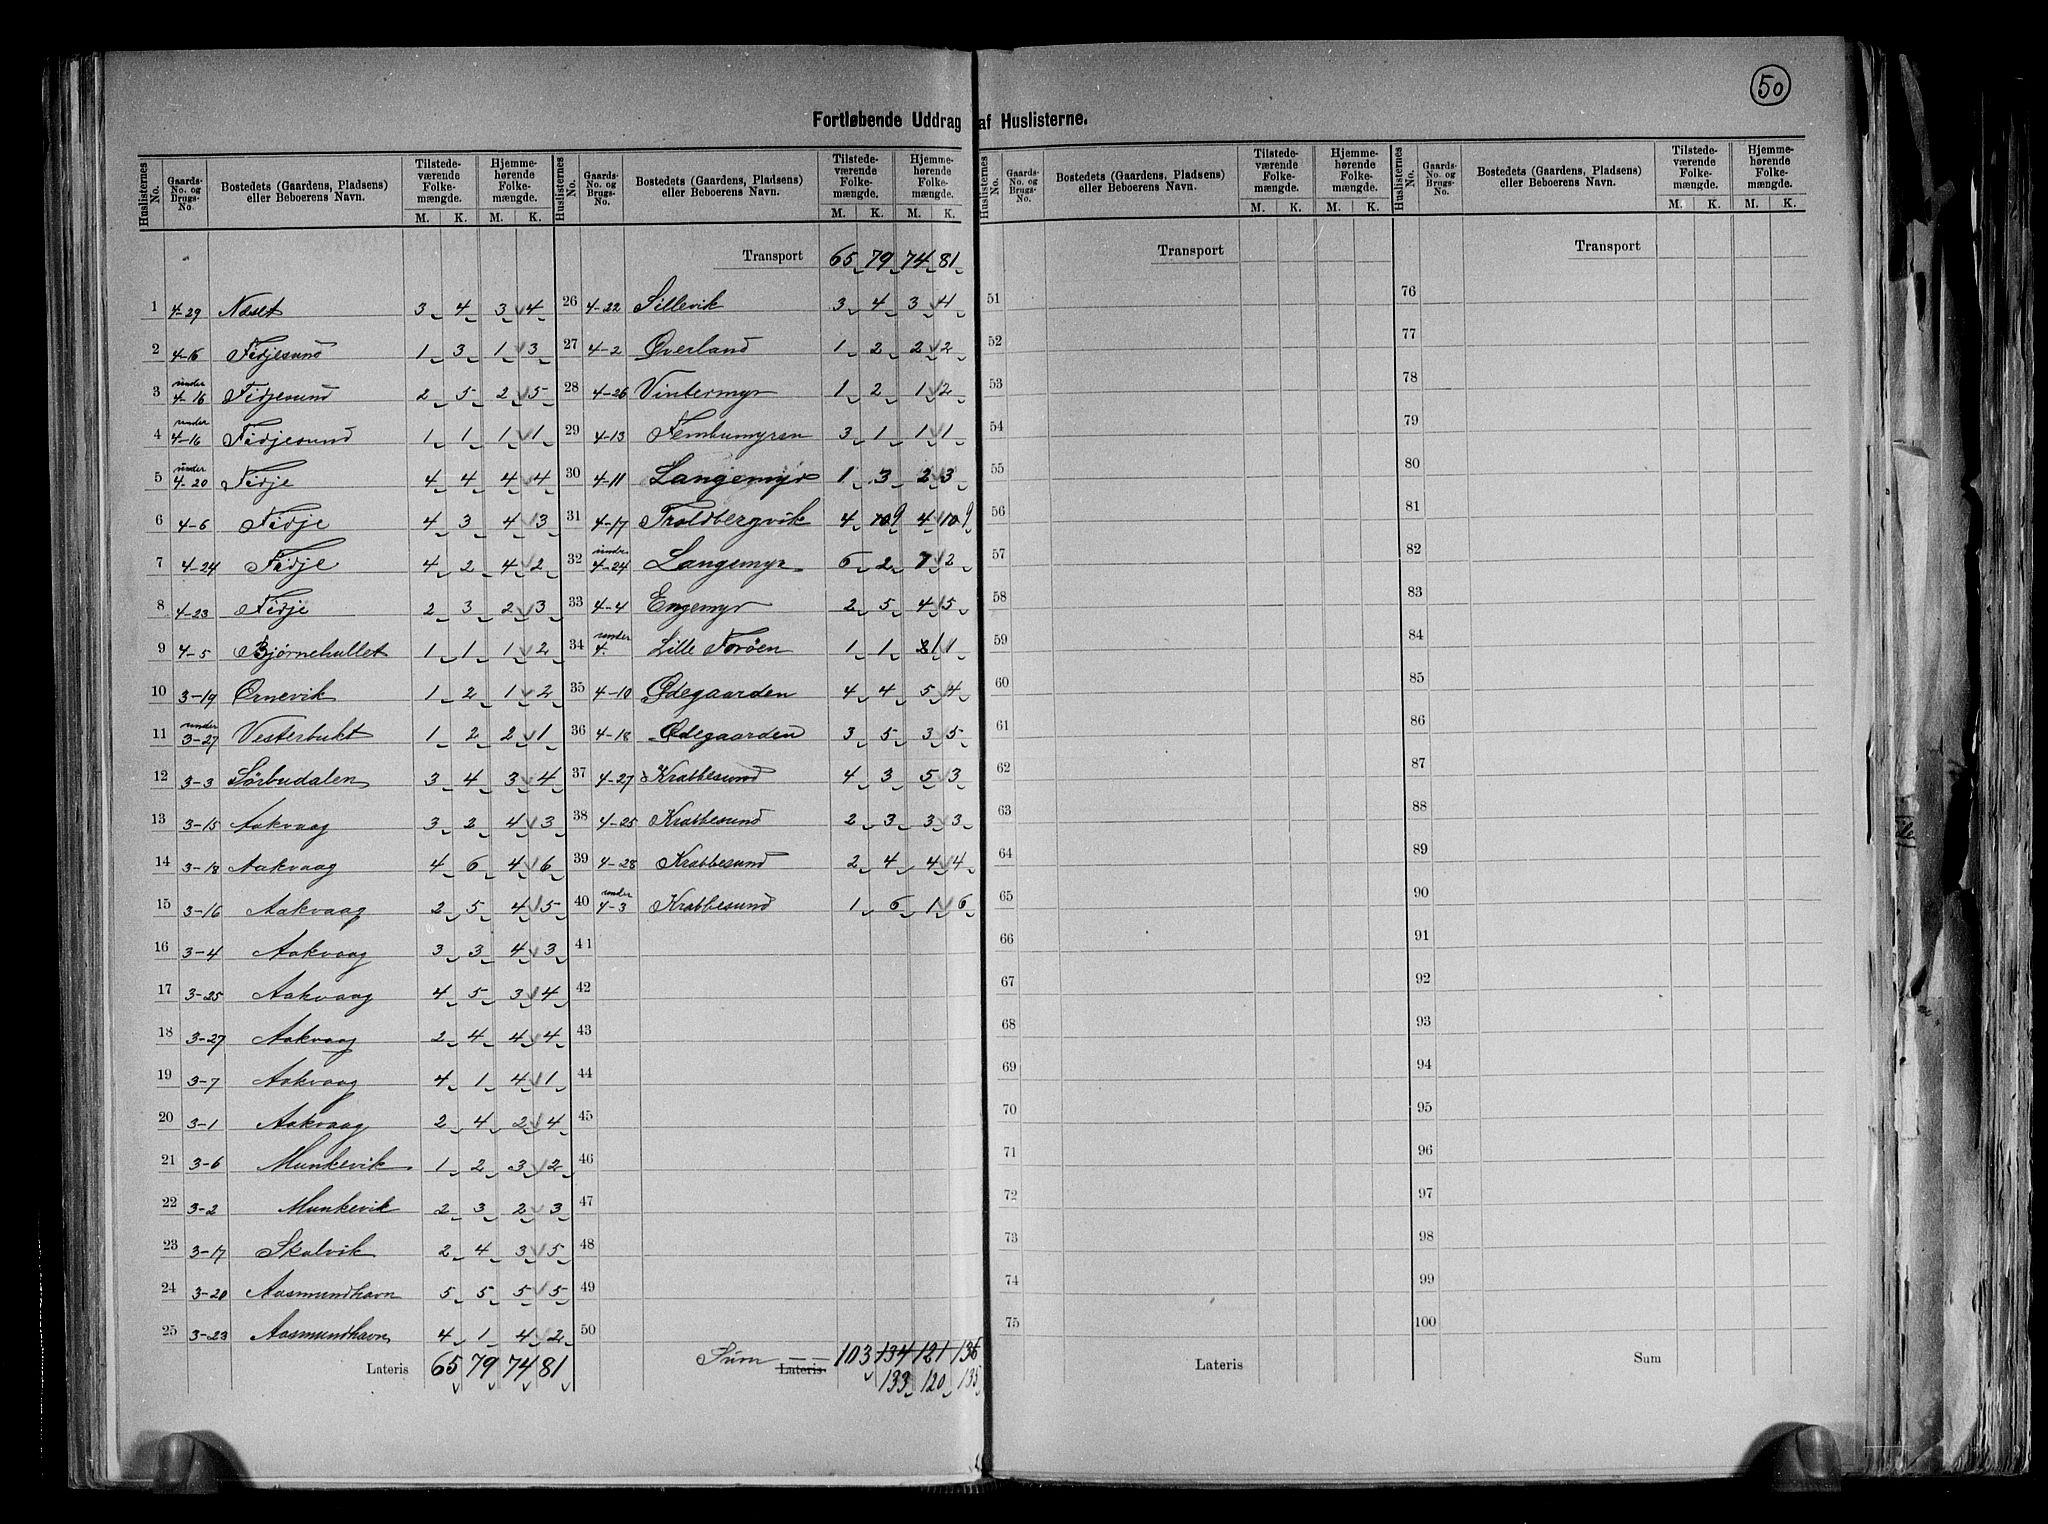 50
Fortløbende Uddrag af Huslisterne.
Huslisternes No. | Gaards-No. og Brugs-No. | Bostedets (Gaardens, Pladsens) eller Beboerens Navn. | Tilstede-værende Folke-mængde. M. K. | Hjemme-hørende Folke-mængde. M. K.
1 4-29 Næset 3 4 3 4
2 4-16 Fidjesund 1 3 1 3
3 under 4-16 Fidjesund 2 5 2 5
4 under 4-16 Fidjesund 1 1 1 1
5 under 4-20 Fidje 4 4 4 4
6 4-6 Fidje 4 3 4 3
7 4-24 Fidje 4 2 4 2
8 4-23 Fidje 2 3 2 3
9 4-5 Bjørnehullet 1 1 1 2
10 3-19 Ørnevik 1 2 1 2
11 under 3-27 Vesterbukt 1 2 2 1
12 3-3 Sørbudalen 3 4 3 4
13 3-15 Aakvaag 3 2 4 3
14 3-18 Aakvaag 4 6 4 6
15 3-16 Aakvaag 2 5 4 5
16 3-4 Aakvaag 3 3 4 3
17 3-25 Aakvaag 4 5 3 4
18 3-27 Aakvaag 2 4 4 4
19 3-7 Aakvaag 4 1 4 1
20 3-1 Aakvaag 2 4 2 4
21 3-6 Munkevik 1 2 3 2
22 3-2 Munkevik 2 3 2 3
23 3-17 Skalvik 2 4 3 5
24 3-20 Aasmundhavn 5 5 5 5
25 3-23 Aasmundhavn 4 1 4 2
Lateris 65 79 74 81
Huslisternes No. | Gaards-No. og Brugs-No. | Bostedets (Gaardens, Pladsens) eller Beboerens Navn. | Tilstede-værende Folke-mængde. M. K. | Hjemme-hørende Folke-mængde. M. K.
Transport 65 79 74 81
26 4-22 Sillevik 3 4 3 4
27 4-2 Øverland 1 2 2 2
28 4-26 Vintermyr 1 2 1 2
29 4-13 Fembumyren 3 1 1 1
30 4-11 Langemyr 1 3 2 3
31 4-17 Troldbergvik 4 10 9 4 10 9
32 under 4-24 Langemyr 6 2 7 2
33 4-4 Engemyr 2 5 4 5
34 under 4. Lille Forøen 1 1 1 1
35 4-10 Ødegaarden 4 4 5 4
36 4-18 Ødegaarden 3 5 3 5
37 4-27 Krabbesund 4 3 5 3
38 4-25 Krabbesund 2 3 3 3
39 4-28 Krabbesund 2 4 4 4
40 under 4-3 Krabbesund 1 6 1 6
41
42
43
44
45
46
47
48
49
50
Sum Lateris 103 134 121 136
133 120 135
Huslisternes No. | Gaards-No. og Brugs-No. | Bostedets (Gaardens, Pladsens) eller Beboerens Navn. | Tilstede-værende Folke-mængde. M. K. | Hjemme-hørende Folke-mængde. M. K.
Transport
51
52
53
54
55
56
57
58
59
60
61
62
63
64
65
66
67
68
69
70
71
72
73
74
75
Lateris
Huslisternes No. | Gaards-No. og Brugs-No. | Bostedets (Gaardens, Pladsens) eller Beboerens Navn. | Tilstede-værende Folke-mængde. M. K. | Hjemme-hørende Folke-mængde. M. K.
Transport
76
77
78
79
80
81
82
83
84
85
86
87
88
89
90
91
92
93
94
95
96
97
98
99
100
Sum